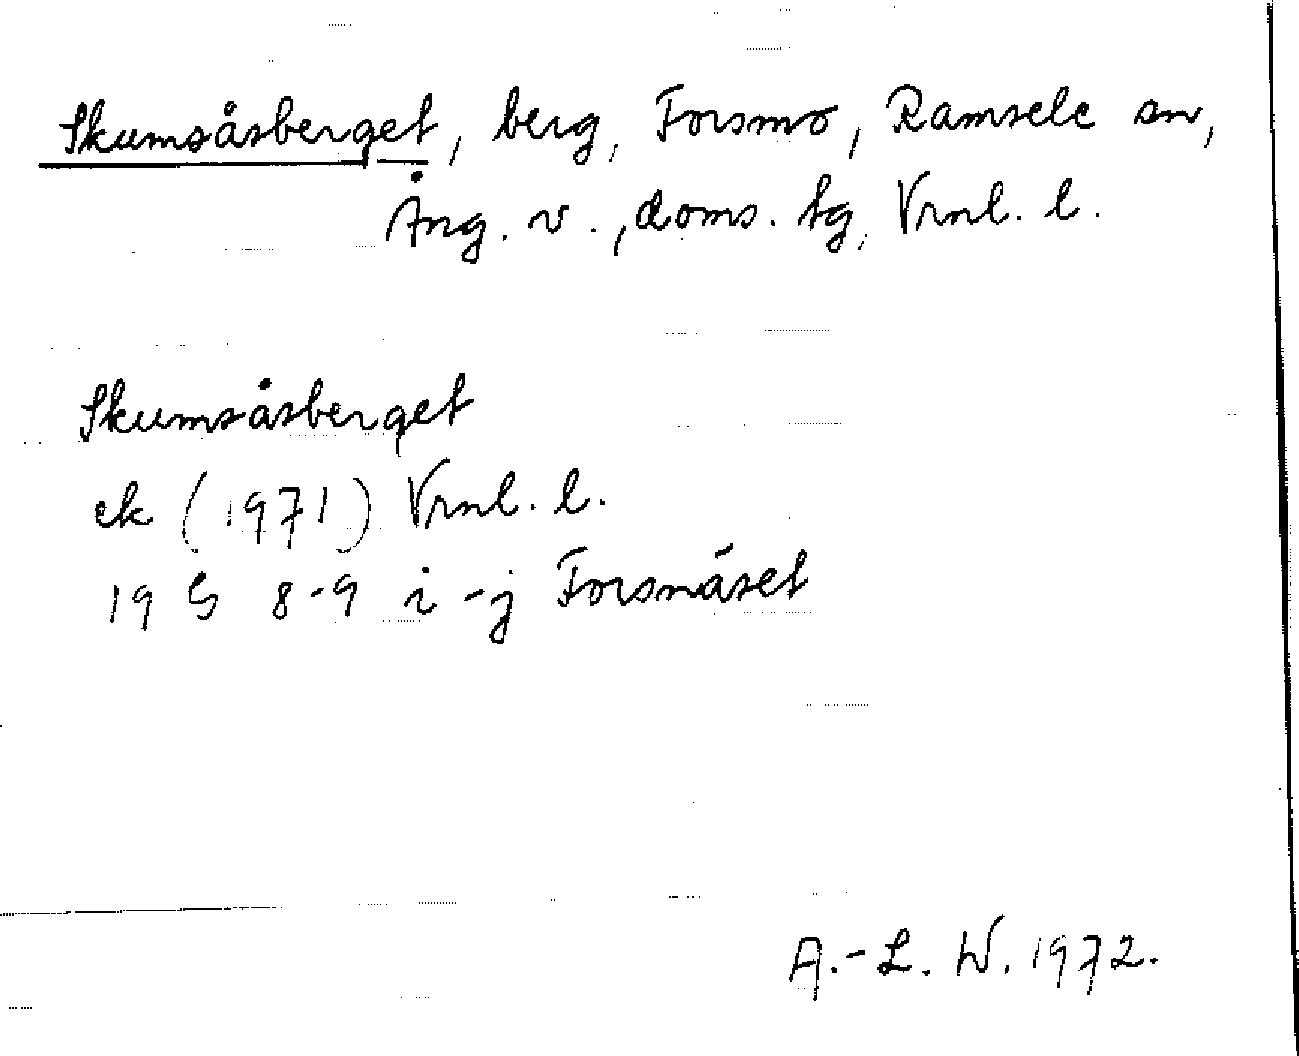 Skumsåsberget, berg, Forsmo, Ramsele sn,
Ång. v., doms. tg, Vrnl. l.
Skumsåsberget
ek (1971) Vrnl. l.
19 G 8-9 i-j Forsnäset
A.-L. W. 1972.